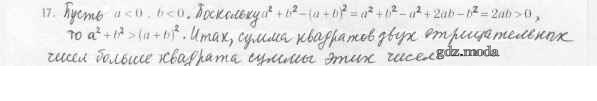 17. Пусть a < 0, b < 0. Поскольку a² + b² - (a + b)² = a² + b² - a² + 2ab - b² = 2ab > 0,
то a² + b² > (a + b)². Итак, сумма квадратов двух отрицательных
чисел больше квадрата суммы этих чисел.
gdz.moda